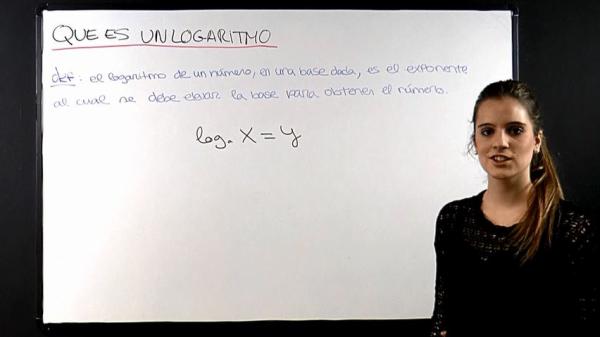 QUE ES UN LOGARITMO
def: el logaritmo de un número, en una base dada, es el exponente
al cual se debe elevar la base para obtener el número.
logₐ X = y